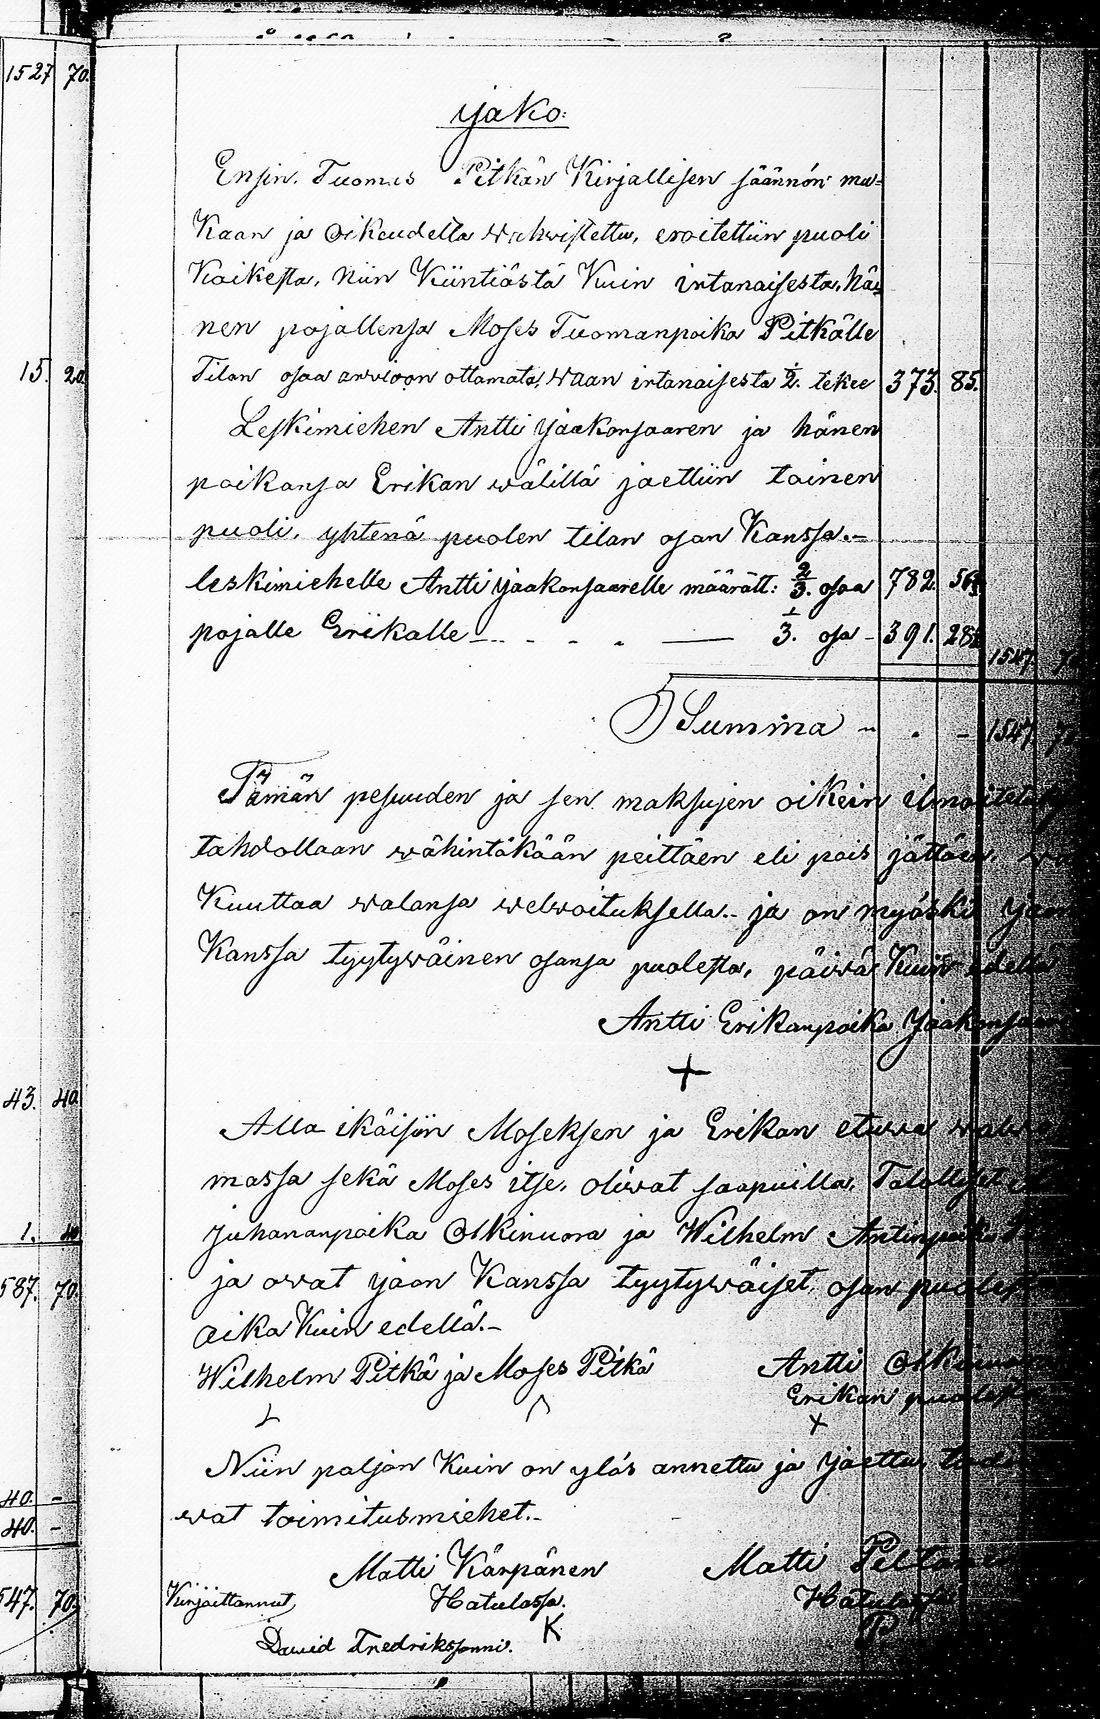 1527 70.
Jako:
Ensin. Tuomas Pitkän Kirjallisen säännön mu-
Kaan ja Oikeudelta wahwistettu, eroitettiin puoli
Kaikesta, niin Kiintiästä Kuin irtanaisesta, hä-
nen pojallensa Moses Tuomanpoika Pitkälle
15. 20. Tilan osaa arwioon ottamata, waan irtanaisesta 1/2. tekee 373. 85.
Leskimiehen Antti Jaakonsaaren ja hänen
poikansa Erikan wälillä jaettiin toinen
puoli, yhtenä puolen tilan osan Kanssa.-
leskimiehelle Antti Jaakonsaarelle määrätt: 2/3. osaa 782. 56
pojalle Erikalle - - - - 1/3. osa - 391. 28
1547
Summa " . - 1547
Tämän pesuuden ja sen maksujen oikein
tahdollaan wähintäkään peittäen eli pois jättäen,
Kuuttaa walansa welwoituksella.- ja on myöski
Kanssa tyytywäinen osansa puolesta, päiwä Kuin edellä
Antti Erikanpoika
+
43. 40.
Alla ikäisiin Moseksen ja Erikan etuwa
massa sekä Moses itse, oliwat saapuilla, Talolliset
1. 40 Juhananpoika Olkinuora ja Wilhelm Antinpoika
587. 70. ja owat jaon Kanssa tyytywäiset, osan
aika Kuin edellä.-
Wilhelm Pitkä ja Moses Pitkä Antti
Erikan
+
Niin paljon Kuin on ylös annettu ja jaettu,
40. - wat toimitusmiehet.-
40. -
Matti Kärpänen Matti
547. 70. Kirjoittannut Hatulassa. Hatulassa
K P
Dawid Fredrikssonni.